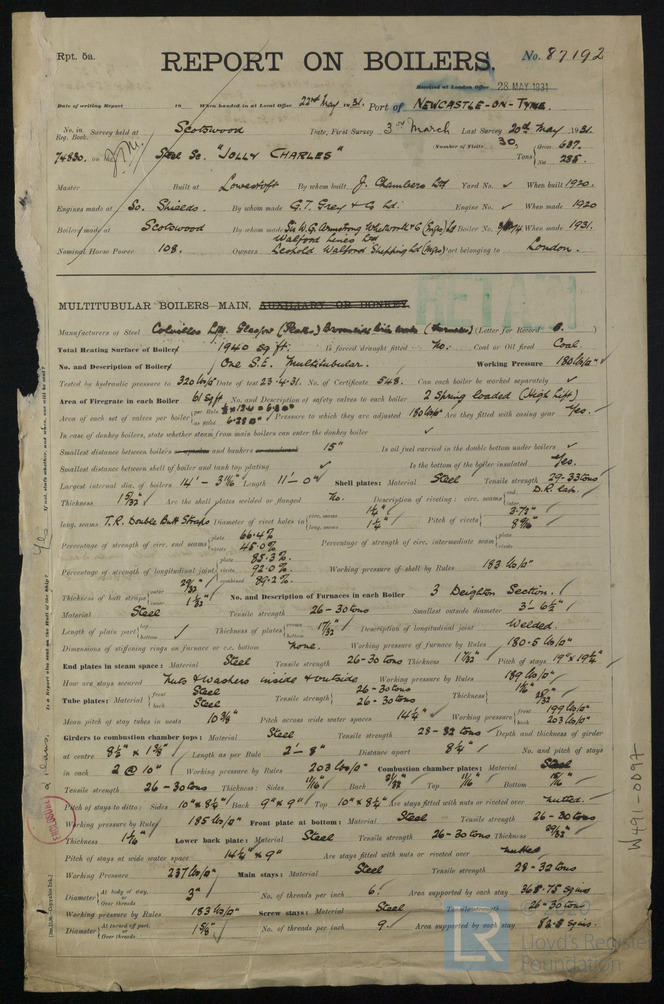 Rpt. 5a.
REPORT ON BOILERS.
No. 87192
Received at London Office 28 MAY 1931
Date of writing Report 19 When handed in at Local Office 22nd May 1931. Port of NEWCASTLE-ON-TYNE.
No. in Reg. Book. Survey held at Scotswood Date, First Survey 3rd March Last Survey 20th May 1931.
Number of Visits 30.
74830. on the Steel Sc. "JOLLY CHARLES" Tons Gross 687. Net 285.
Master Built at Lowestoft By whom built J. Chambers Ltd Yard No. ✓ When built 1920.
Engines made at So. Shields. By whom made G.T. Grey & Co Ld. Engine No. ✓ When made 1920
Boilers made at Scotswood By whom made Sir W.G. Armstrong Whitworth & Co (Engrs) Ld Boiler No. When made 1931.
Walford Lines Ltd
Nominal Horse Power 108. Owners Leopold Walford Shipping Ld (Mgrs) Port belonging to London.
MULTITUBULAR BOILERS MAIN, AUXILIARY OR DONKEY.
Manufacturers of Steel Colvilles Ltd. Glasgow (Plates) (Furnaces) (Letter for Record S.)
Total Heating Surface of Boilers 1940 sq ft. Is forced draught fitted No. Coal or Oil fired Coal
No. and Description of Boilers One S.E. Multitubular. Working Pressure 180 lbs/□" ✓
Tested by hydraulic pressure to 320 lbs/□" Date of test 23.4.31. No. of Certificate 548. Can each boiler be worked separately ✓
Area of Firegrate in each Boiler 61 sq ft No. and Description of safety valves to each boiler 2 Spring loaded (High Lift)
Area of each set of valves per boiler per Rule as fitted 6.28□" Pressure to which they are adjusted 180 lbs/□" Are they fitted with easing gear Yes.
In case of donkey boilers, state whether steam from main boilers can enter the donkey boiler ✓
Smallest distance between boilers or uptakes and bunkers or woodwork 15" Is oil fuel carried in the double bottom under boilers ✓
Smallest distance between shell of boiler and tank top plating ✓ Is the bottom of the boiler insulated Yes.
Largest internal dia. of boilers 14' - 3 11/16" Length 11' - 0" Shell plates: Material Steel Tensile strength 29-33 tons
Thickness 1 5/32" Are the shell plates welded or flanged No. Description of riveting: circ. seams end D.R. Lap. inter.
long. seams T.R. Double Butt Straps Diameter of rivet holes in circ. seams 1 1/4" long. seams 1 1/4" Pitch of rivets 3.72" 8 9/16"
Percentage of strength of circ. end seams plate 66.4% rivets 45.0% Percentage of strength of circ. intermediate seam plate rivets
Percentage of strength of longitudinal joint plate 85.3% rivets 92.0% combined 89.2% Working pressure of shell by Rules 183 lbs/□"
Thickness of butt straps outer 29/32" inner 1 1/32" No. and Description of Furnaces in each Boiler 3 Deighton Section.
Material Steel Tensile strength 26-30 tons Smallest outside diameter 3'- 6 1/2"
Length of plain part top bottom ✓ Thickness of plates crown bottom 17/32" Description of longitudinal joint Welded.
Dimensions of stiffening rings on furnace or c.c. bottom None. Working pressure of furnace by Rules 180.5 lbs/□"
End plates in steam space: Material Steel Tensile strength 26-30 tons Thickness 1 7/32" Pitch of stays 19" x 19 1/4"
How are stays secured Nuts & washers inside & outside Working pressure by Rules 189 lbs/□"
Tube plates: Material front Steel back Steel Tensile strength 26-30 tons 26-30 tons Thickness 1 1/16" 29/32"
Mean pitch of stay tubes in nests 10 3/8" Pitch across wide water spaces 14 1/4" Working pressure front 199 lbs/□" back 203 lbs/□"
Girders to combustion chamber tops: Material Steel Tensile strength 28-32 tons Depth and thickness of girder
at centre 8 1/2" x 1 5/8" Length as per Rule 2' - 8" Distance apart 8 1/4" No. and pitch of stays
in each 2 @ 10" Working pressure by Rules 203 lbs/□" Combustion chamber plates: Material Steel
Tensile strength 26-30 tons Thickness: Sides 11/16" Back 21/32" Top 11/16" Bottom 15/16"
Pitch of stays to ditto: Sides 10" x 8 1/4" Back 9" x 9" Top 10" x 8 1/4" Are stays fitted with nuts or riveted over nutted.
Working pressure by Rules 185 lbs/□" Front plate at bottom: Material Steel Tensile strength 26-30 tons
Thickness 1 1/16" Lower back plate: Material Steel Tensile strength 26-30 tons Thickness 29/32"
Pitch of stays at wide water space 14 1/4" x 9" Are stays fitted with nuts or riveted over nutted
Working Pressure 237 lbs/□" Main stays: Material Steel Tensile strength 28-32 tons
Diameter At body of stay, or Over threads 3" No. of threads per inch 6. Area supported by each stay 368.75 sq ins
Working pressure by Rules 183 lbs/□" Screw stays: Material Steel Tensile strength 26-30 tons
Diameter At turned off part, or Over threads 1 5/8" No. of threads per inch 9. Area supported by each stay 82.8 sq ins.
W491-0097
© 2020
LR
Lloyd's Register
Foundation